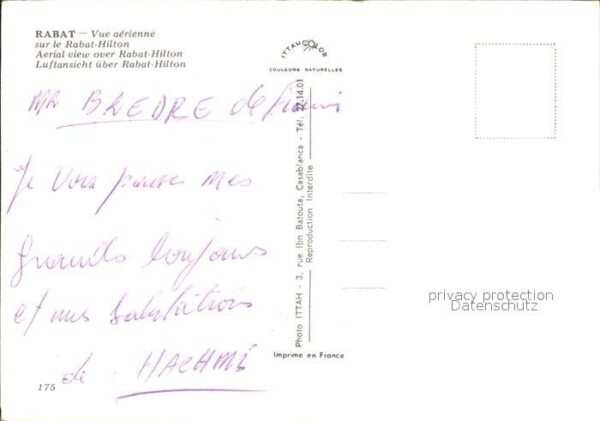 RABAT — Vue aérienne
sur le Rabat-Hilton
Aerial view over Rabat-Hilton
Luftansicht über Rabat-Hilton
ITTAH COLOR
COULEURS NATURELLES
Mr BAEDRE de
Je vous passe mes
grands bonjours
et mes salutations
de : HACHMI
175
Photo ITTAH - 3, rue Ibn Batouta, Casablanca - Tél. 27.14.01
Reproduction Interdite
Imprimé en France
privacy protection
Datenschutz